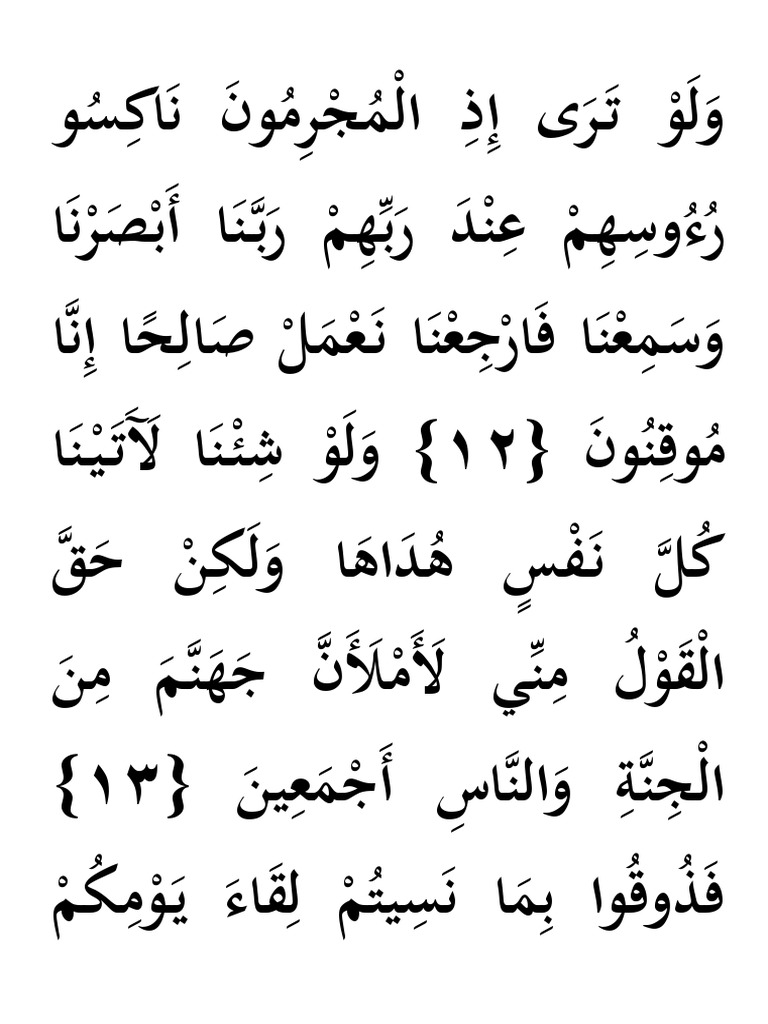 وَلَوْ تَرَى إِذِ الْمُجْرِمُونَ نَاكِسُو
رُءُوسِهِمْ عِنْدَ رَبِّهِمْ رَبَّنَا أَبْصَرْنَا
وَسَمِعْنَا فَارْجِعْنَا نَعْمَلْ صَالِحًا إِنَّا
مُوقِنُونَ {١٢} وَلَوْ شِئْنَا لَآَتَيْنَا
كُلَّ نَفْسٍ هُدَاهَا وَلَكِنْ حَقَّ
الْقَوْلُ مِنِّي لَأَمْلَأَنَّ جَهَنَّمَ مِنَ
الْجِنَّةِ وَالنَّاسِ أَجْمَعِينَ {١٣}
فَذُوقُوا بِمَا نَسِيتُمْ لِقَاءَ يَوْمِكُمْ